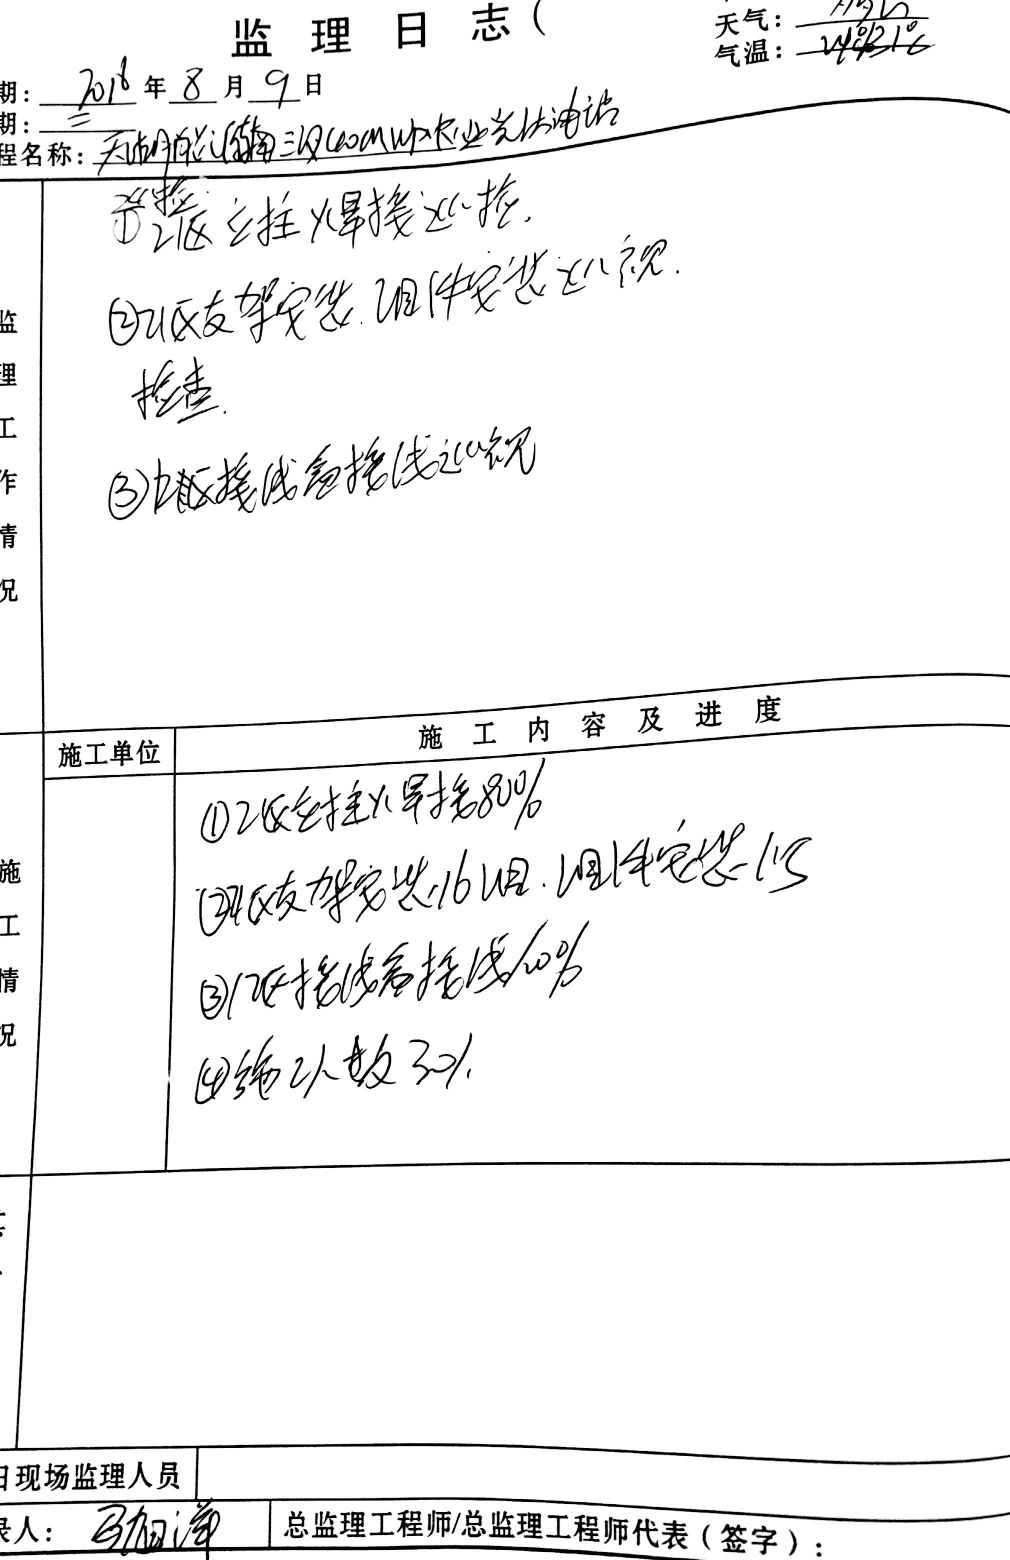 监理日志(
天气:
气温: 24℃/31℃
期: 2018年8月9日
期: 三
程名称: 三 100MWp农业光伏电站
巡检
①2#区立柱焊接巡检.
②2#区支架安装.组件安装巡视.
检查.
③1#区接线盒接线巡视
监理工作情况
施工单位 施工内容及进度
①2#区立柱焊接80%
②2#区支架安装16组.组件安装
③1#区接线盒接线
④施工人数30人.
施工情况
日现场监理人员
录人: 马旭洋 总监理工程师/总监理工程师代表(签字):